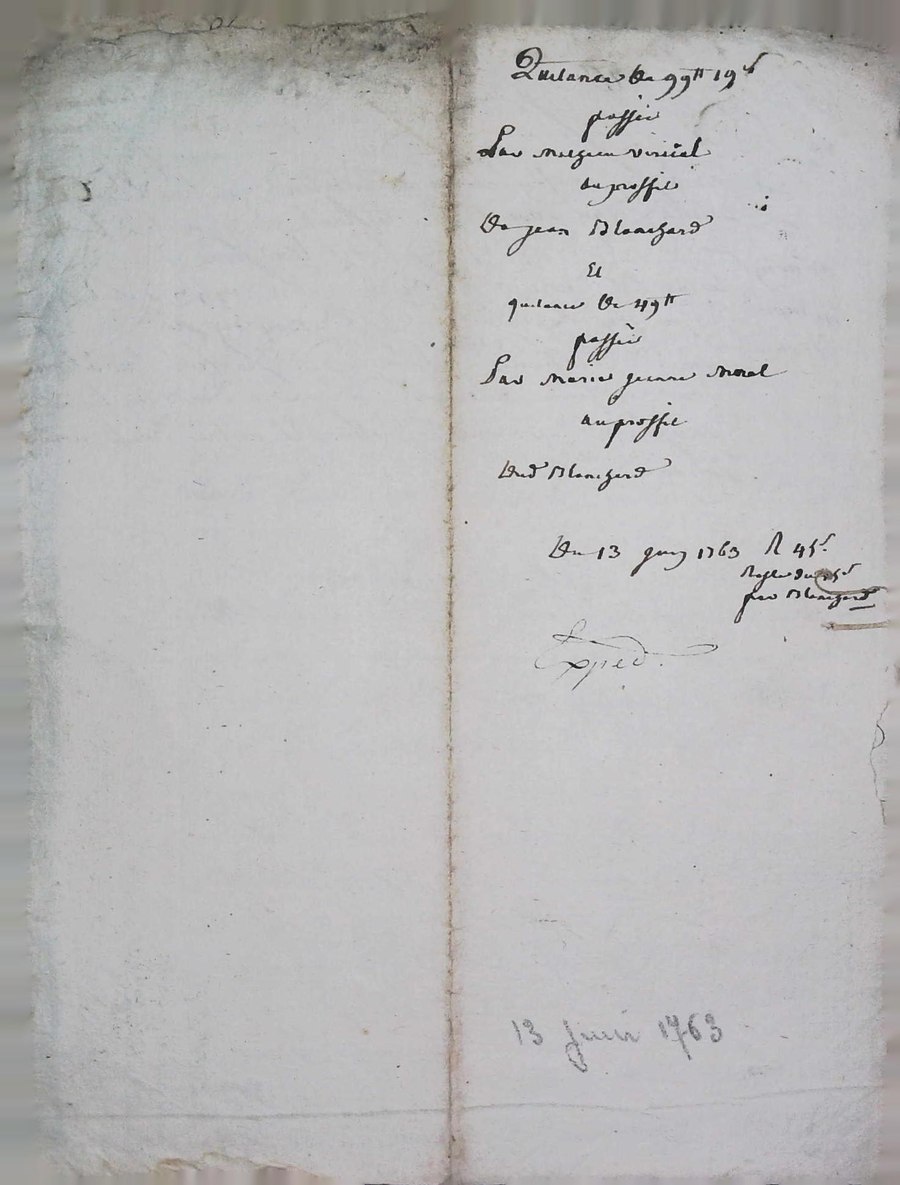 Quitance de 99tt 19s
passée
Par vincal
au proffit
De jean Blanchard
Et
quitance de 49tt
passée
Par marie jeanne morel
au proffit
Dud Blanchard
Du 13 juin 1763 R 45s
par Blanchard
Exped.
13 juin 1763